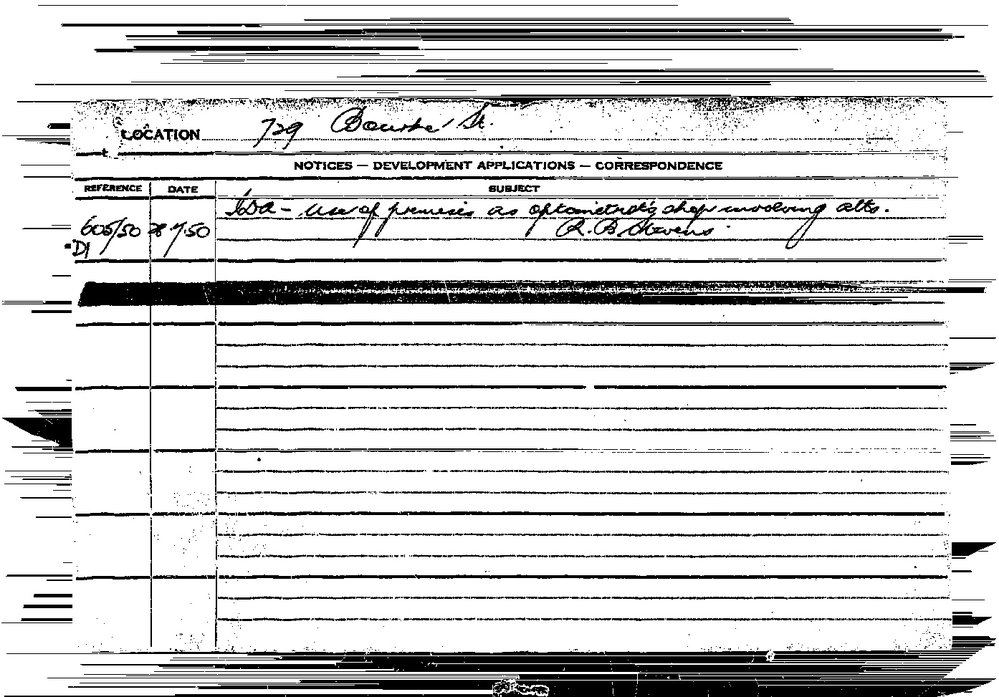 LOCATION 729 Bourke St.
NOTICES — DEVELOPMENT APPLICATIONS — CORRESPONDENCE
REFERENCE DATE SUBJECT
Use of premises as optometrist's shop involving alts.
605/50 7.50 R. B. Stevens
DI